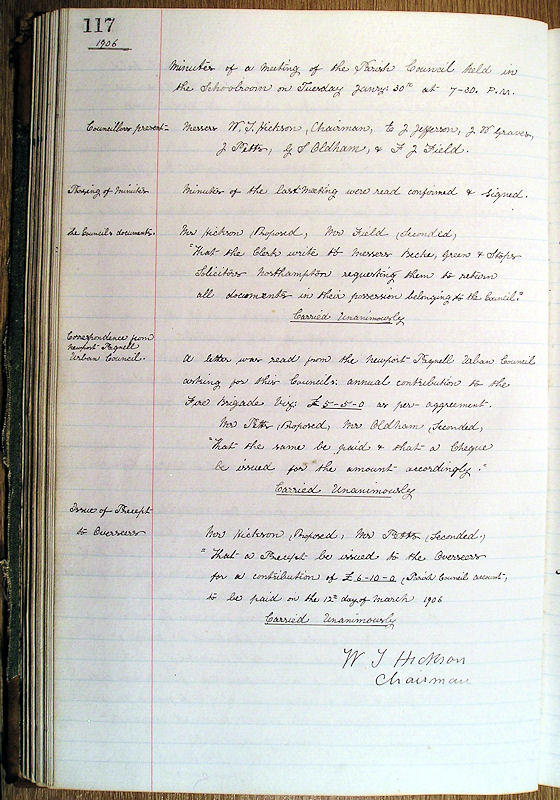 117
1906
Minutes of a Meeting of the Parish Council held in
the Schoolroom on Tuesday Janry: 30th at 7-30. P.M.
Councillors present- Messrs W. T. Hickson, (Chairman, C J Jefferson, J W Graves,
J Petts, G S Oldham, & F J Field.
Passing of Minutes Minutes of the last Meeting were read confirmed & signed.
The Councils documents. Mr Hickson (Proposed, Mr Field (Seconded,
"That the Clerk write to Messrs Becke, Green & Stops
Solicitors Northampton requesting them to return
all documents in their possession belonging to the Council."
Carried Unanimously
Correspondence from
Newport-Pagnell
Urban Council. A letter was read from the Newport Pagnell Urban Council
asking for this Councils: annual contribution to the
Fire Brigade viz: £5-5-0 as per agreement.
Mr Petts (Proposed, Mr Oldham (Seconded,
"That the same be paid & that a Cheque
be issued for the amount accordingly."
Carried Unanimously
Issue of Precept
to Overseers Mr Hickson (Proposed, Mr Petts (Seconded,
"That a Precept be issued to the Overseers
for a contribution of £6-10-0 (Parish Council account,
to be paid on the 12th day of March 1906
Carried Unanimously
W T Hickson
Chairman